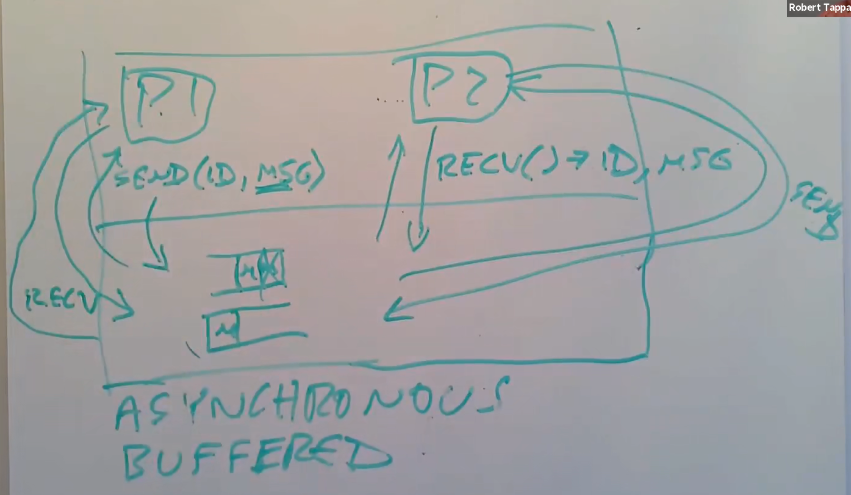 Robert Tappa
P1
P2
SEND(ID, MSG)
RECV() → ID, MSG
SEND
RECV
M
ASYNCHRONOUS
BUFFERED